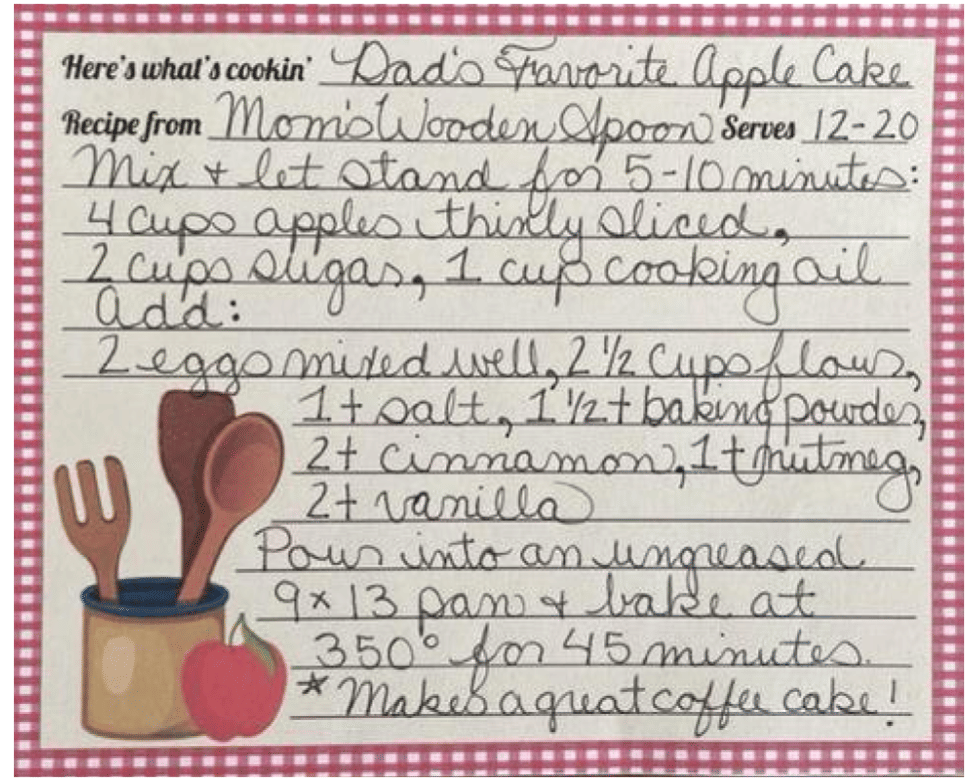 Here's what's cookin' Dad's Favorite Apple Cake
Recipe from Mom's Wooden Spoon Serves 12-20
Mix + let stand for 5-10 minutes:
4 cups apples thinly sliced,
2 cups sugar, 1 cup cooking oil
Add:
2 eggs mixed well, 2 1/2 cups flour,
1 t salt, 1 1/2 t baking powder,
2 t cinnamon, 1 t nutmeg,
2 t vanilla
Pour into an ungreased
9x13 pan + bake at
350° for 45 minutes.
*Makes a great coffee cake!